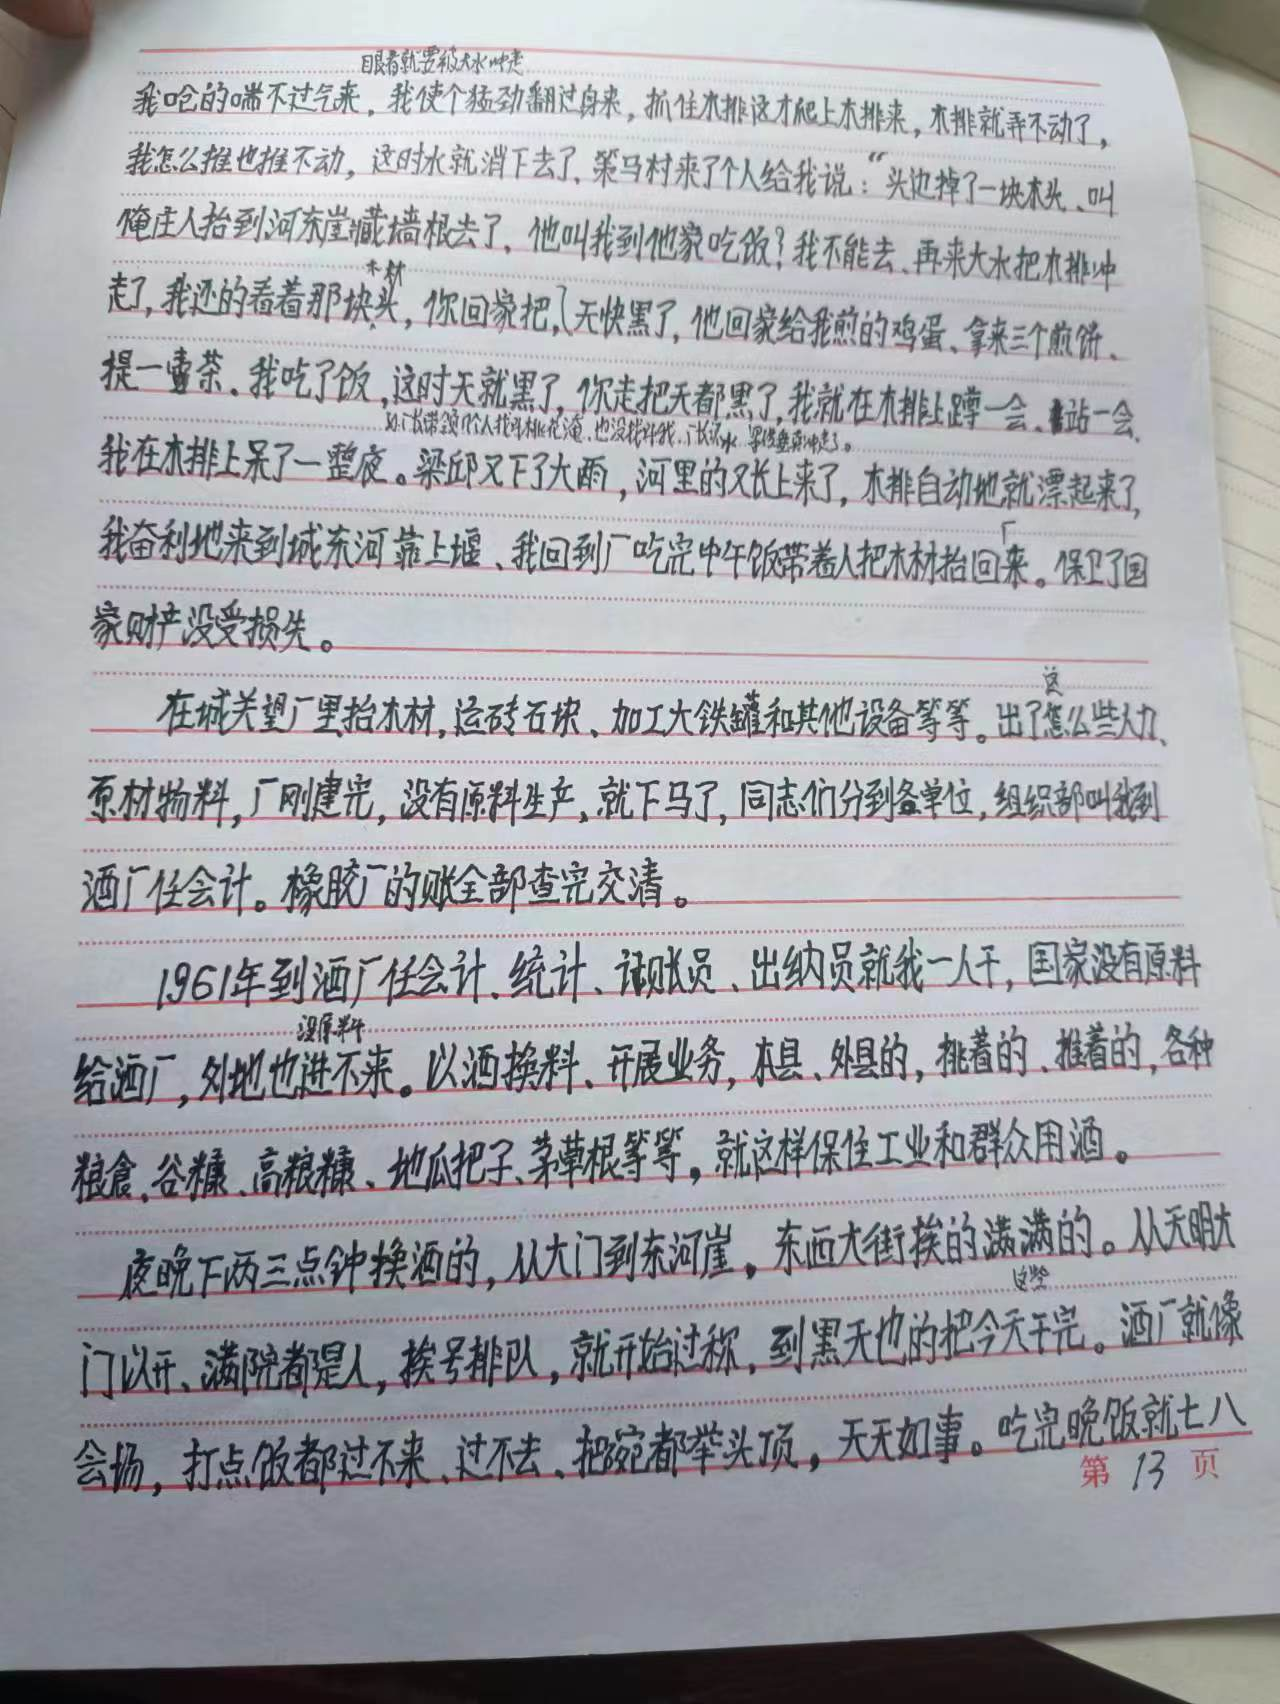 眼看就要被大水冲走
我呛的喘不过气来，我使个猛劲翻过身来，抓住木排这才爬上木排来，木排就弄不动了，
我怎么推也推不动，这时水就消下去了、策马村来了个人给我说：“头边掉了一块木头、叫
俺庄人抬到河东崖藏墙根去了，他叫我到他家吃饭？我不能去、再来大水把木排冲
木材
走了，我还的看着那块头，你回家把，天快黑了，他回家给我煎的鸡蛋、拿来三个煎饼、
提一壶茶、我吃了饭，这时天就黑了，你走把天都黑了，我就在木排上蹲一会、站一会、
找到桃花淹、也没找到我、
我在木排上呆了一整夜。梁邱又下了大雨，河里的又长上来了，木排自动地就漂起来了，
我奋利地来到城东河靠上堰、我回到厂吃完中午饭带着人把木材抬回来。保卫了国
家财产没受损失。
这
在城关望厂里抬木材，运砖石块、加工大铁罐和其他设备等等。出了怎么些人力、
原材物料，厂刚建完，没有原料生产、就下马了，同志们分到各单位，组织部叫我到
酒厂任会计。橡胶厂的账全部查完交清。
1961年到酒厂任会计、统计、记账员、出纳员就我一人干，国家没有原料
没原料
给酒厂，外地也进不来。以酒换料、开展业务，本县、外县的，挑着的、推着的，各种
粮食、谷糠、高粮糠、地瓜把子、茅草根等等，就这样保住工业和群众用酒。
夜晚下两三点钟换酒的，从大门到东河崖，东西大街挨的满满的。从天明大
这些
门以开、满院都是人，挨号排队，就开始过称，到黑天也的把今天干完。酒厂就像
会场，打点饭都过不来、过不去、把碗都举头顶，天天如事。吃完晚饭就七八
第 13 页